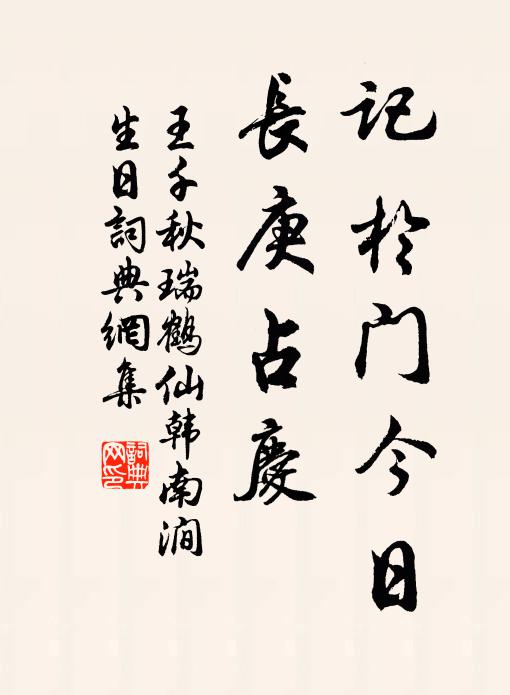 記於門今日
長庚占慶
王千秋瑞鶴仙韩南澗
生日詞典網集
詞典网印